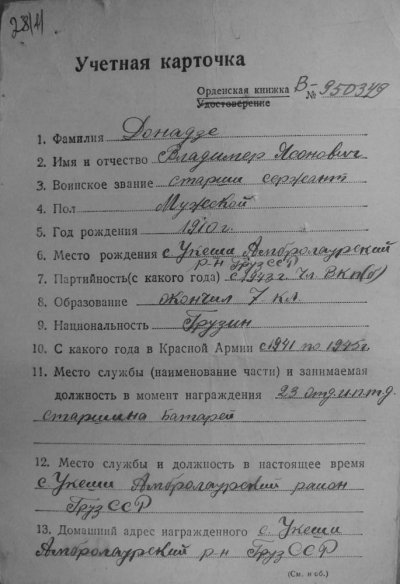 28/4/
Учетная карточка
Орденская книжка В-
Удостоверение № 950349
1. Фамилия Донадзе
2. Имя и отчество Владимер Ясонович
3. Воинское звание старши сержант
4. Пол Мужской
5. Год рождения 1910 г.
6. Место рождения с Укеши Амбролаурский
р-н Груз ССР
7. Партийность(с какого года) с 1943 г Чл ВКП(б)
8. Образование окончил 7 кл
9. Национальность Грузин
10. С какого года в Красной Армии с 1941 по 1945 г
11. Место службы (наименование части) и занимаемая
должность в момент награждения 23 отд.и.п.т.д.
старшина батареи
12. Место службы и должность в настоящее время
с. Укеши Амбролаурский район
Груз ССР
13. Домашний адрес награжденного с. Укеши
Амбролаурский р-н Груз ССР
(См. н об.)